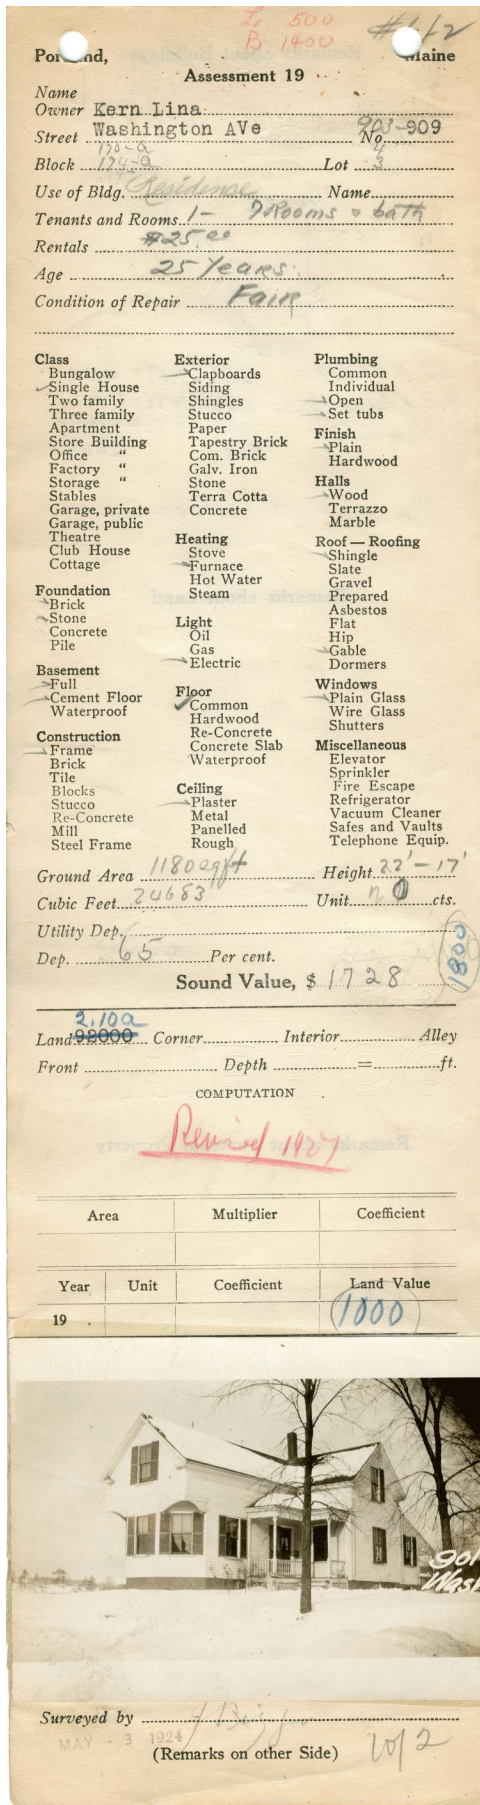 L 500
B 1400
#1/2
Portland, Maine
Assessment 19
Name
Owner Kern Lina
Street Washington AVe No. 903-909
170-a 4
Block 174-a Lot 3
Use of Bldg. Residense Name
Tenants and Rooms 1- 7 Rooms & bath
Rentals $25.00
Age 25 Years
Condition of Repair Fair
Class
Bungalow
Single House
Two family
Three family
Apartment
Store Building
Office "
Factory "
Storage "
Stables
Garage, private
Garage, public
Theatre
Club House
Cottage
Foundation
Brick
Stone
Concrete
Pile
Basement
Full
Cement Floor
Waterproof
Construction
Frame
Brick
Tile
Blocks
Stucco
Re-Concrete
Mill
Steel Frame
Exterior
Clapboards
Siding
Shingles
Stucco
Paper
Tapestry Brick
Com. Brick
Galv. Iron
Stone
Terra Cotta
Concrete
Heating
Stove
Furnace
Hot Water
Steam
Light
Oil
Gas
Electric
Floor
Common
Hardwood
Re-Concrete
Concrete Slab
Waterproof
Ceiling
Plaster
Metal
Panelled
Rough
Plumbing
Common
Individual
Open
Set tubs
Finish
Plain
Hardwood
Halls
Wood
Terrazzo
Marble
Roof — Roofing
Shingle
Slate
Gravel
Prepared
Asbestos
Flat
Hip
Gable
Dormers
Windows
Plain Glass
Wire Glass
Shutters
Miscellaneous
Elevator
Sprinkler
Fire Escape
Refrigerator
Vacuum Cleaner
Safes and Vaults
Telephone Equip.
Ground Area 1180 sqft Height 22'-17'
Cubic Feet 24683' Unit cts.
Utility Dep.
Dep. 65 Per cent.
1800
Sound Value, $ 1728
2.10a
Land 92000 Corner Interior Alley
Front Depth = ft.
COMPUTATION
Revised 1927
Area Multiplier Coefficient
Year Unit Coefficient Land Value
19 1000
901
Wash
Surveyed by
MAY - 3 1924
(Remarks on other Side)
1 of 2